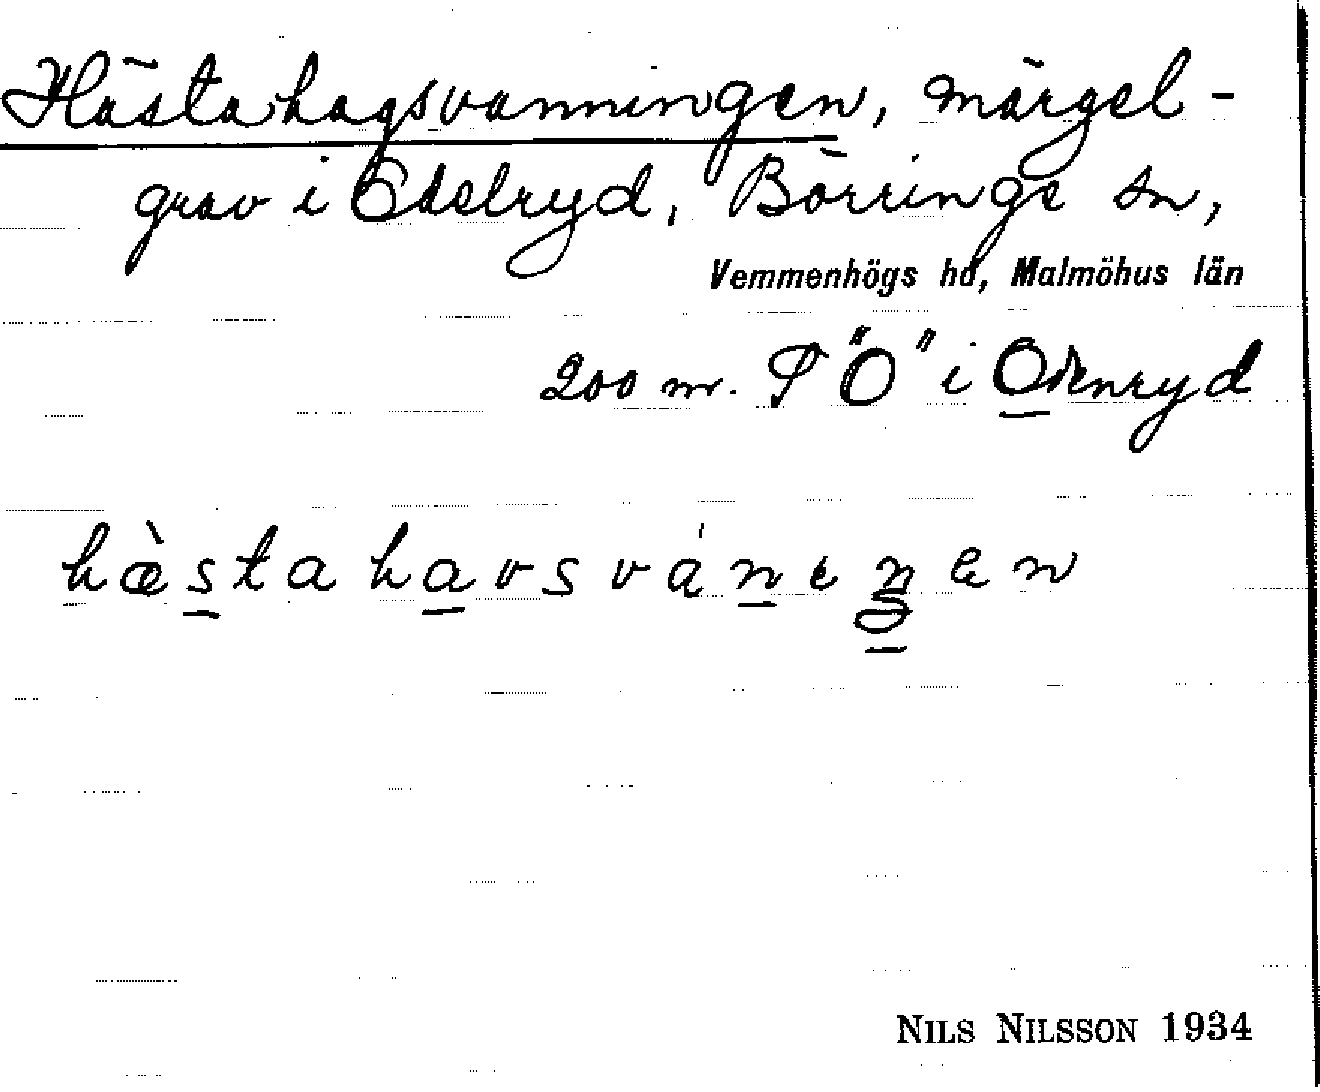 Hästahagsvanningen, märgel-
grav i Edelryd, Börringe sn,
Vemmenhögs hd, Malmöhus län
200 m. S "O" i Odenryd
hæ̀stahavsvánıŋen
NILS NILSSON 1934